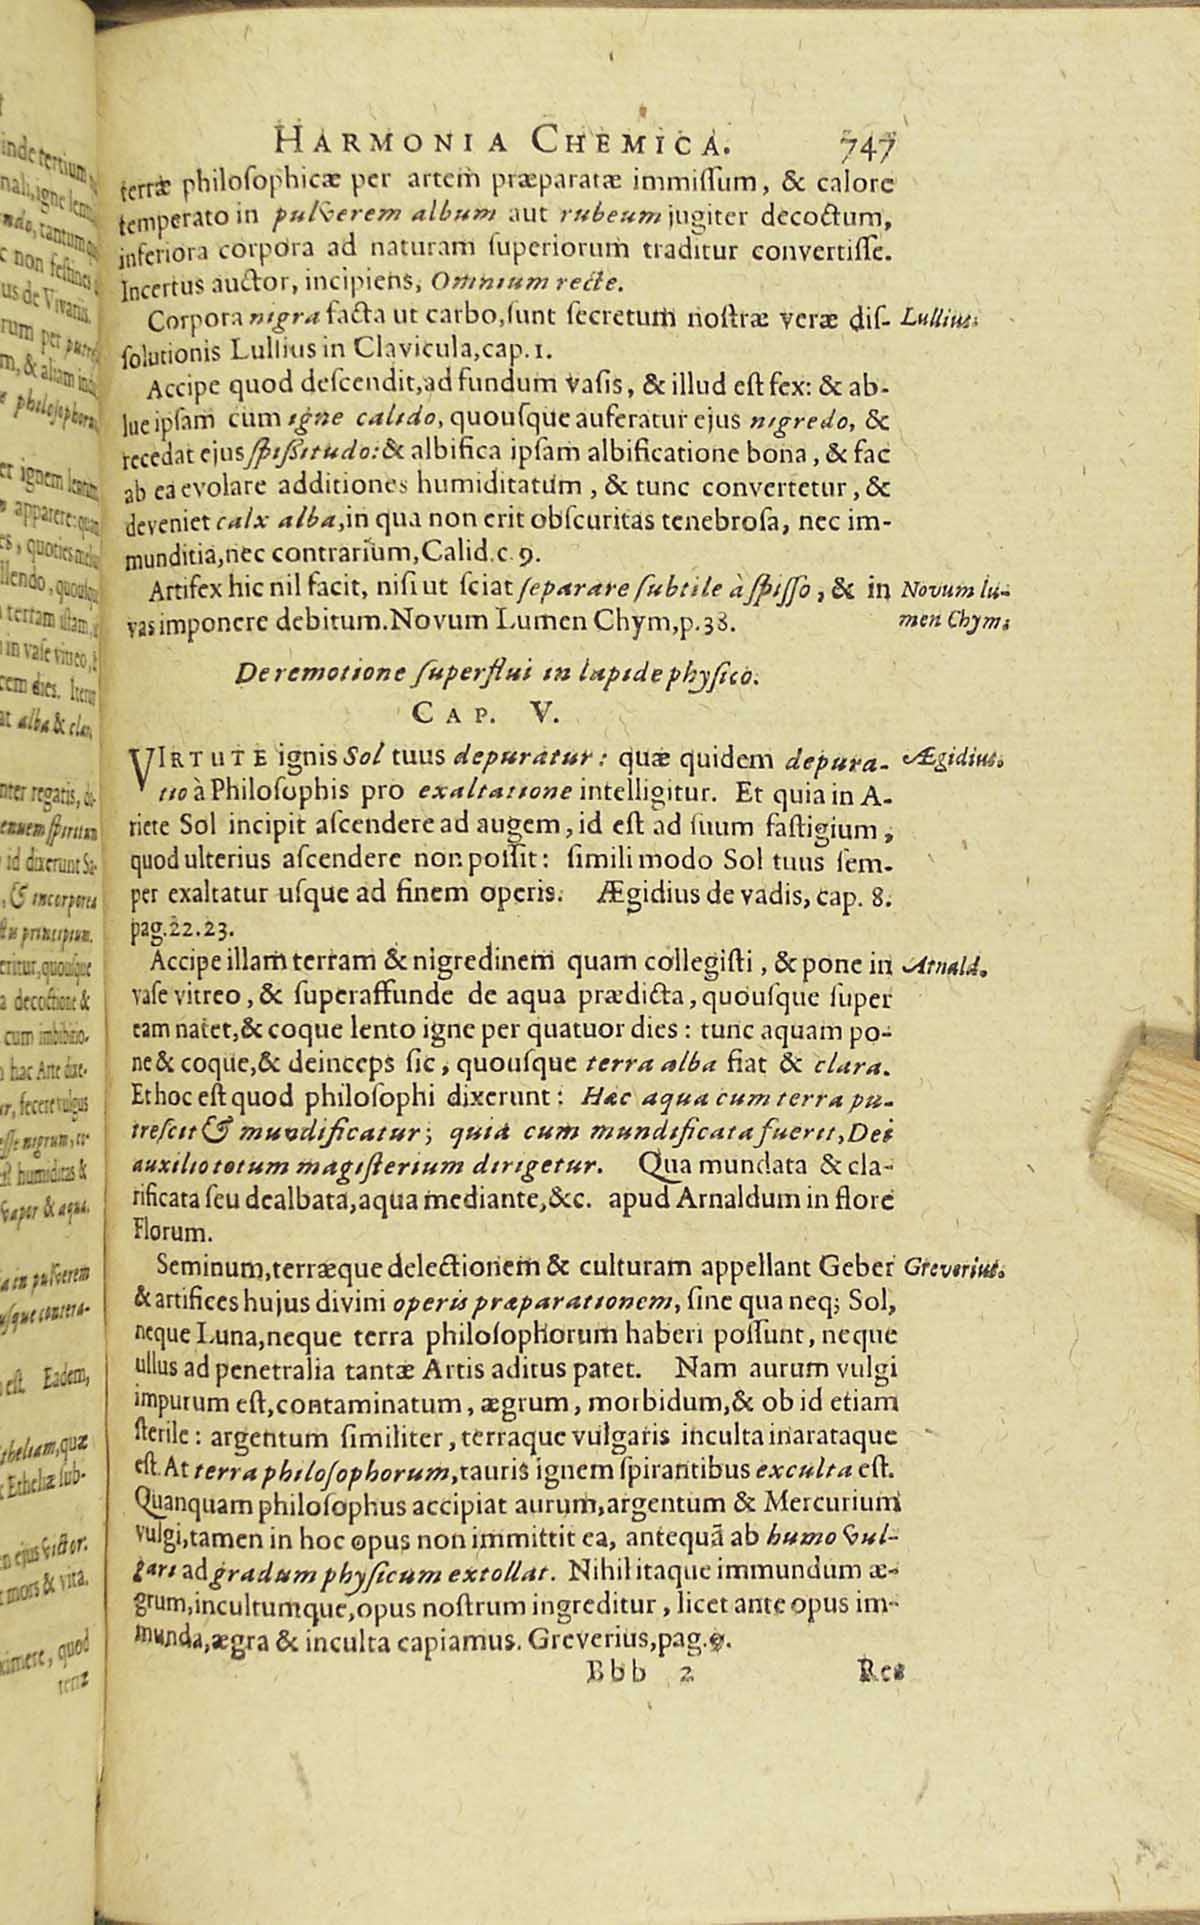 HARMONIA CHEMICA. 747
terræ philosophicæ per artem præparatæ immissum, & calore
temperato in pulverem album aut rubeum jugiter decoctum,
inferiora corpora ad naturam superiorum traditur convertisse.
Incertus auctor, incipiens, Omnium recte.
Corpora nigra facta ut carbo, sunt secretum nostræ veræ dis- Lullius.
solutionis Lullius in Clavicula, cap. 1.
Accipe quod descendit, ad fundum vasis, & illud est fex: & ab-
lue ipsam cum igne calido, quousque auferatur ejus nigredo, &
recedat ejus spissitudo: & albifica ipsam albificatione bona, & fac
ab ea evolare additiones humiditatum, & tunc convertetur, &
deveniet calx alba, in qua non erit obscuritas tenebrosa, nec im-
munditia, nec contrarium, Calid. c. 9.
Artifex hic nil facit, nisi ut sciat separare subtile à spisso, & in Novum lu-
vas imponere debitum. Novum Lumen Chym, p. 38. men Chym.
De remotione superflui in lapide physico.
CAP. V.
VIRTUTE ignis Sol tuus depuratur: quæ quidem depura- Ægidius.
tio à Philosophis pro exaltatione intelligitur. Et quia in A-
riete Sol incipit ascendere ad augem, id est ad suum fastigium,
quod ulterius ascendere non possit: simili modo Sol tuus sem-
per exaltatur usque ad finem operis. Ægidius de vadis, cap. 8.
pag. 22. 23.
Accipe illam terram & nigredinem quam collegisti, & pone in Arnald.
vase vitreo, & superaffunde de aqua prædicta, quousque super
eam natet, & coque lento igne per quatuor dies: tunc aquam po-
ne & coque, & deinceps sic, quousque terra alba fiat & clara.
Et hoc est quod philosophi dixerunt: Hac aqua cum terra pu-
trescit & mundificatur; quia cum mundificata fuerit, Dei
auxilio totum magisterium dirigetur. Qua mundata & cla-
rificata seu dealbata, aqua mediante, &c. apud Arnaldum in flore
Florum.
Seminum, terræque delectionem & culturam appellant Geber Greverius.
& artifices hujus divini operis præparationem, sine qua neq; Sol,
neque Luna, neque terra philosophorum haberi possunt, neque
ullus ad penetralia tantæ Artis aditus patet. Nam aurum vulgi
impurum est, contaminatum, ægrum, morbidum, & ob id etiam
sterile: argentum similiter, terraque vulgaris inculta inarataque
est. At terra philosophorum, tauris ignem spirantibus exculta est.
Quanquam philosophus accipiat aurum, argentum & Mercurium
vulgi, tamen in hoc opus non immittit ea, antequã ab humo vul-
gari ad gradum physicum extollat. Nihil itaque immundum æ-
grum, incultumque, opus nostrum ingreditur, licet ante opus im-
munda, ægra & inculta capiamus. Greverius, pag. 9.
Bbb 2 Res